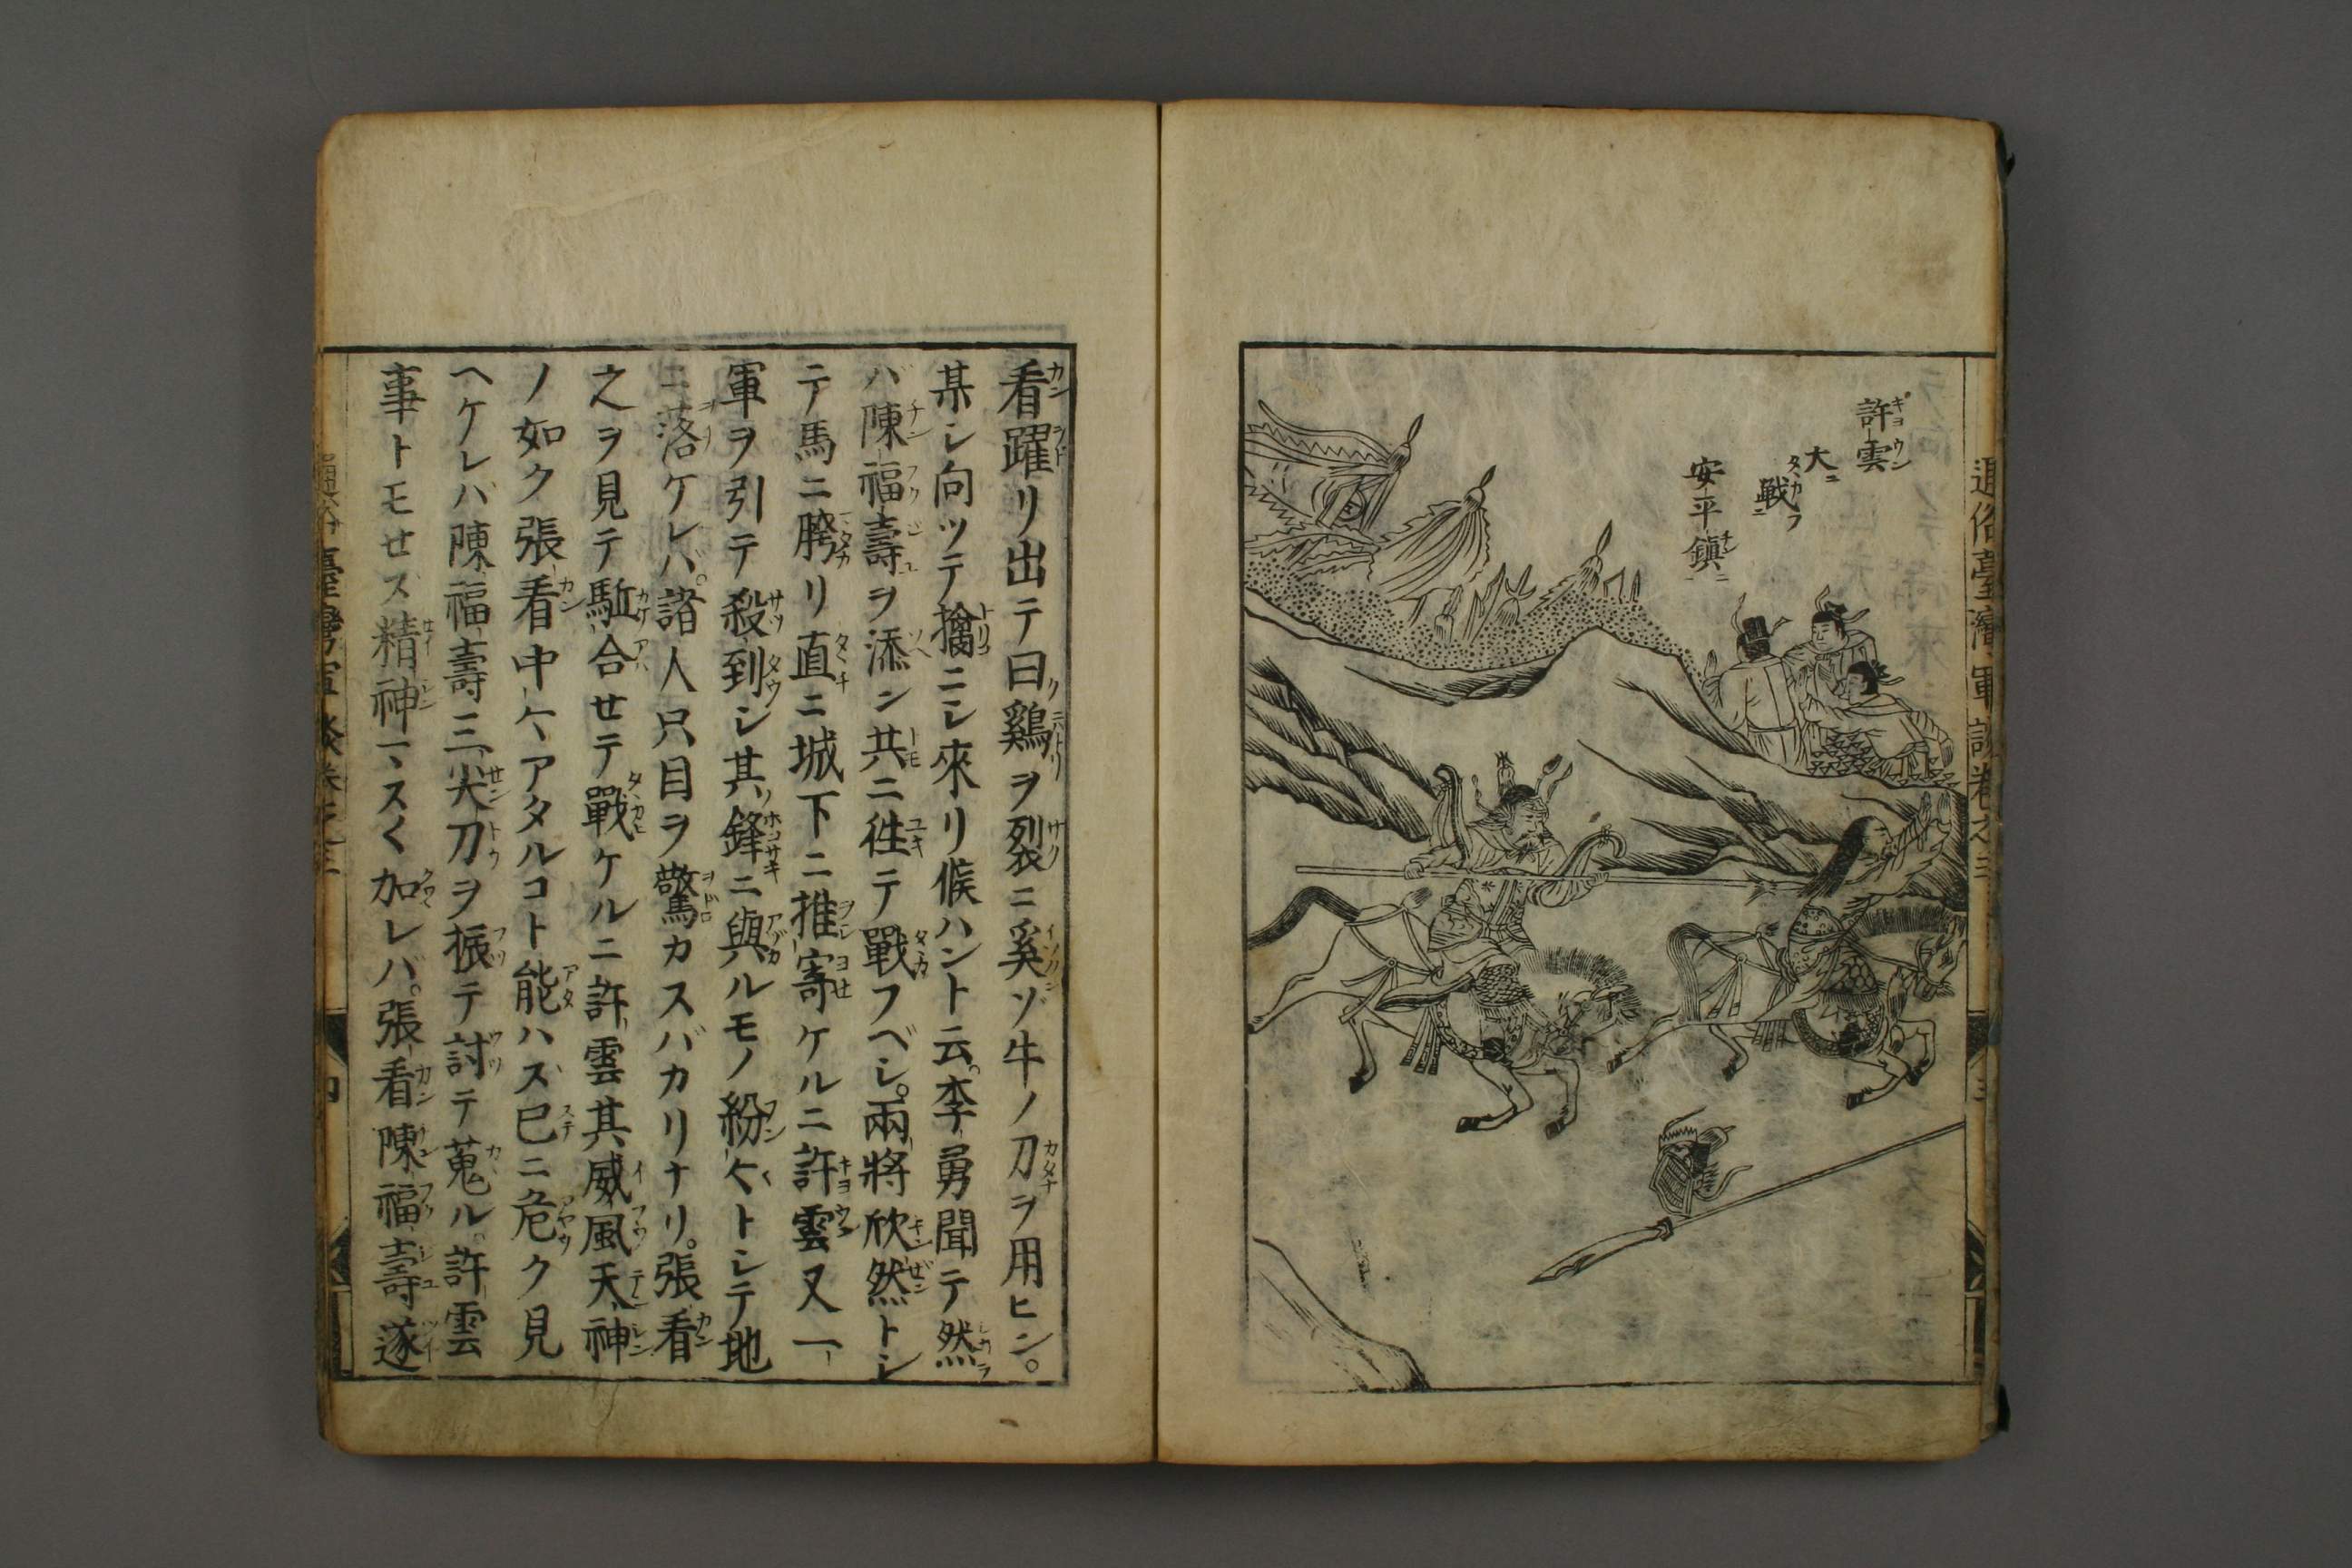 通俗臺灣軍談卷之三
三
許雲
大ニ
戰フ
安平鎮ニ
看躍リ出テ曰鷄ヲ裂ニ奚ゾ牛ノ刀ヲ用ヒン。
某シ向ツテ擒ニシ來リ候ハント云。李勇聞テ然
バ陳福壽ヲ添ン共ニ往テ戰フベシ。兩將欣然トシ
テ馬ニ胯リ直ニ城下ニ推寄ケルニ許雲又一
軍ヲ引テ殺到シ其鋒ニ與ルモノ紛々トシテ地
ニ落ケレバ。諸人只目ヲ驚カスバカリナリ。張看
之ヲ見テ駈合セテ戰ケルニ許雲其威風天神
ノ如ク張看中々アタルコト能ハズ已ニ危ク見
ヘケレバ陳福壽三尖刀ヲ振テ討テ蒐ル。許雲
事トモセズ精神マスく加レバ。張看陳福壽遂
臺灣軍談卷之三
四